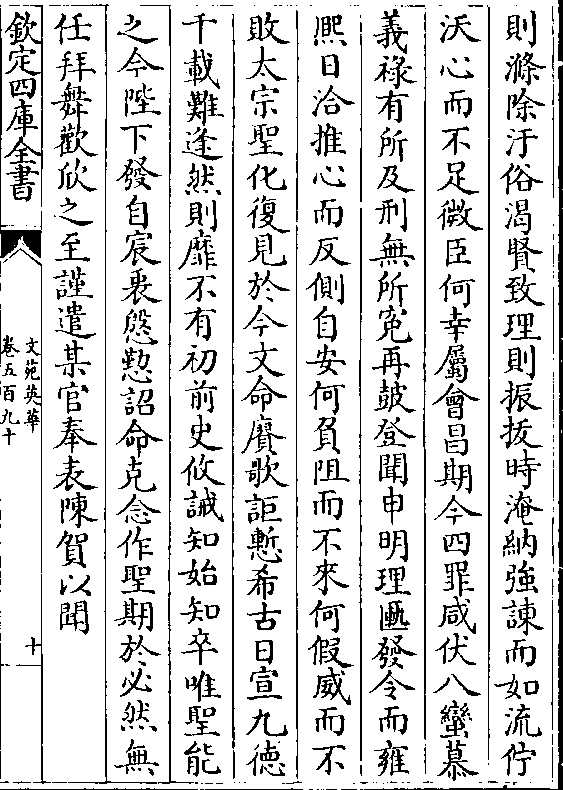 則滌除汙俗渴賢致理則振拔時淹納強諫而如流佇
沃心而不足微臣何幸屬會昌期今四罪咸伏八蠻慕
義祿有所及刑無所寃再鼓登聞申明理匭發令而雍
熈日洽推心而反側自安何負阻而不來何假威而不
敗太宗聖化復見於今文命賡歌詎慙希古日宣九德
千載難逢然則靡不有初前史攸誡知始知卒唯聖能
之今陛下發自宸衷慇懃詔命克念作聖期於必然無
任拜舞歡欣之至謹遣某官奉表陳賀以聞
欽定四庫全書
文苑英華
卷五百九十
十